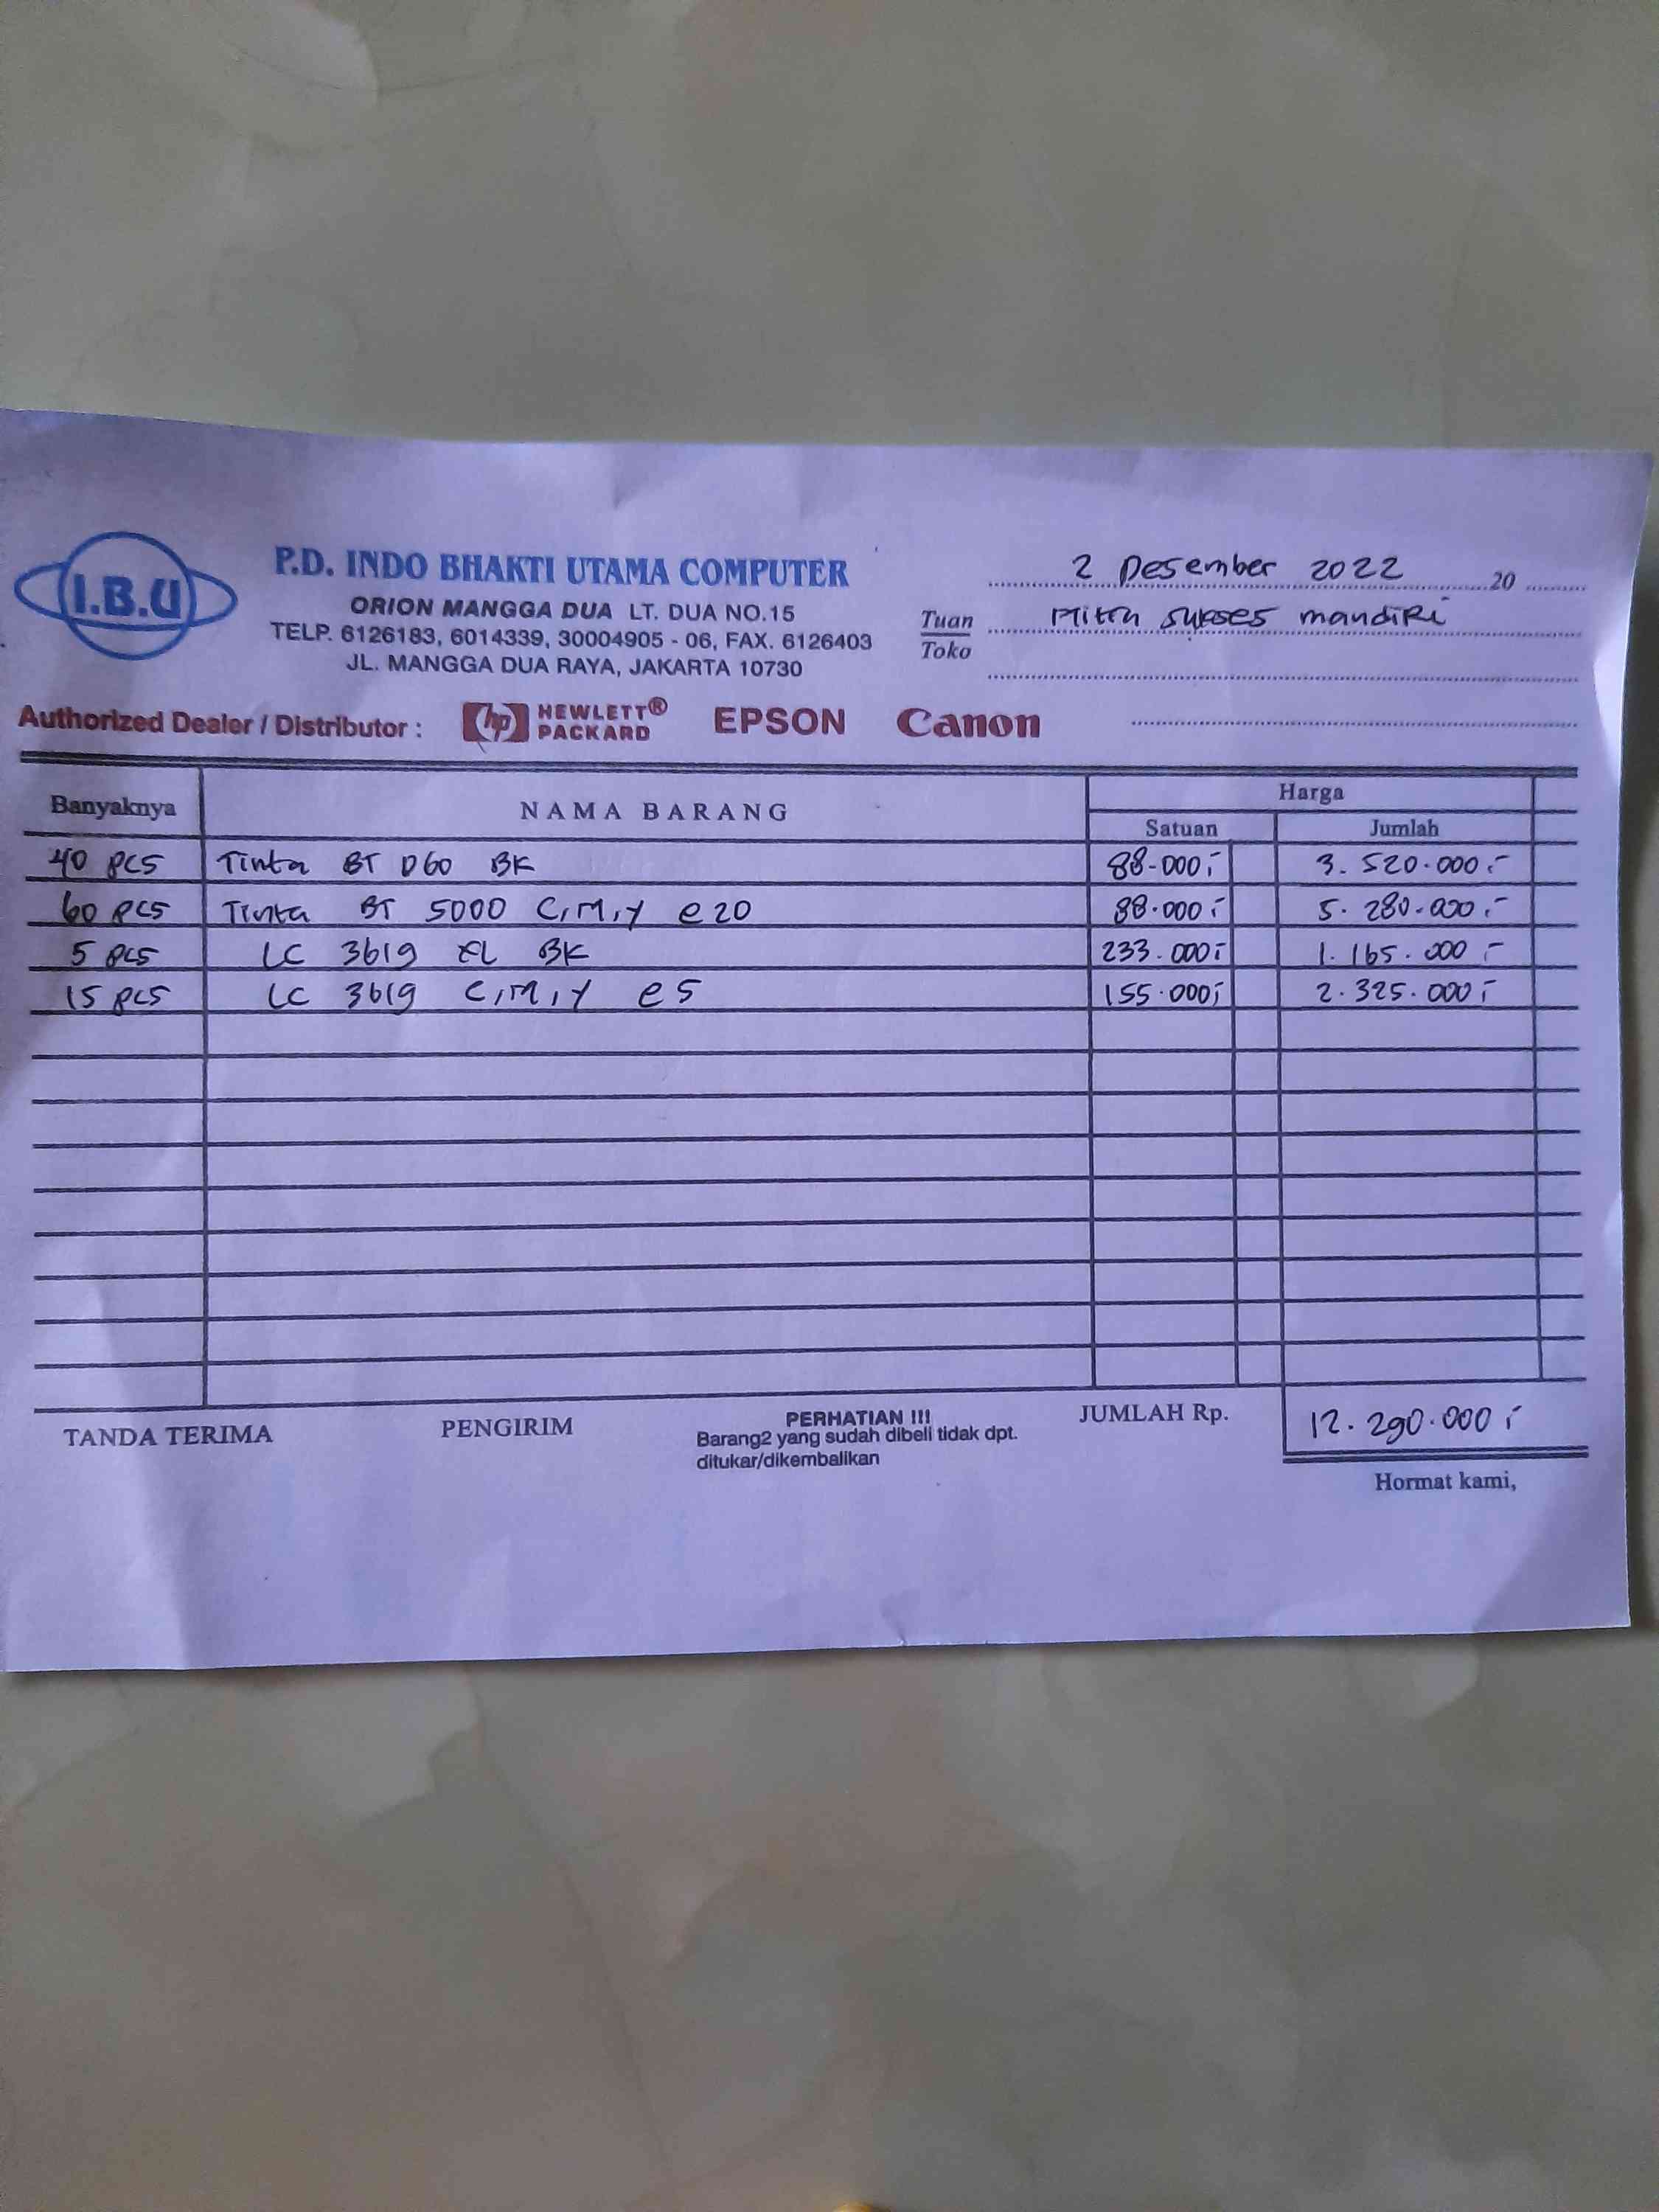 I.B.U
P.D. INDO BHAKTI UTAMA COMPUTER
ORION MANGGA DUA LT. DUA NO.15
TELP. 6126183, 6014339, 30004905 - 06, FAX. 6126403
JL. MANGGA DUA RAYA, JAKARTA 10730
2 Desember 2022 20
Tuan Mitra sukses mandiri
Toko
Authorized Dealer / Distributor : hp HEWLETT® PACKARD EPSON Canon
Banyaknya NAMA BARANG Harga
Satuan Jumlah
40 pcs Tinta BT D60 BK 88.000,- 3.520.000,-
60 pcs Tinta BT 5000 C,M,Y @20 88.000,- 5.280.000,-
5 pcs LC 3619 XL BK 233.000,- 1.165.000,-
15 pcs LC 3619 C,M,Y @5 155.000,- 2.325.000,-
TANDA TERIMA PENGIRIM PERHATIAN !!! JUMLAH Rp. 12.290.000,-
Barang2 yang sudah dibeli tidak dpt.
ditukar/dikembalikan
Hormat kami,